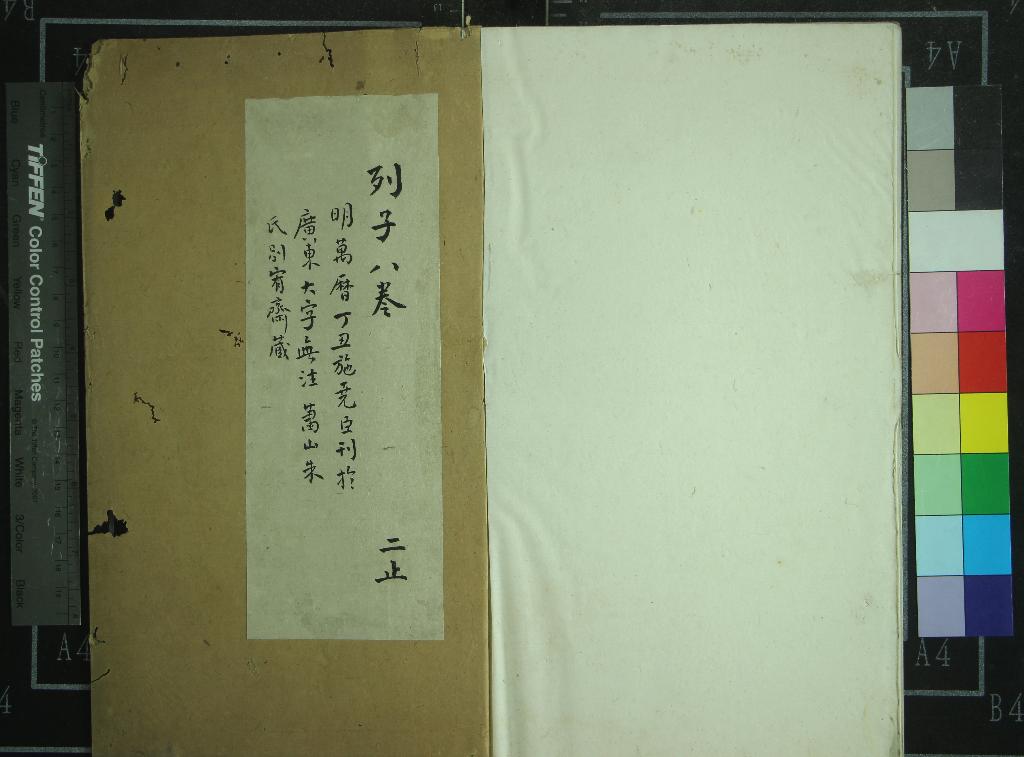 列子八卷
明萬曆丁丑施堯臣刊於
廣東大字無注 蕭山朱
氏別宥齋藏
二止
TIFFEN Color Control Patches
Blue
Cyan
Green
Yellow
Red
Magenta
White
3/Color
Black
A4
A4
A4
B4